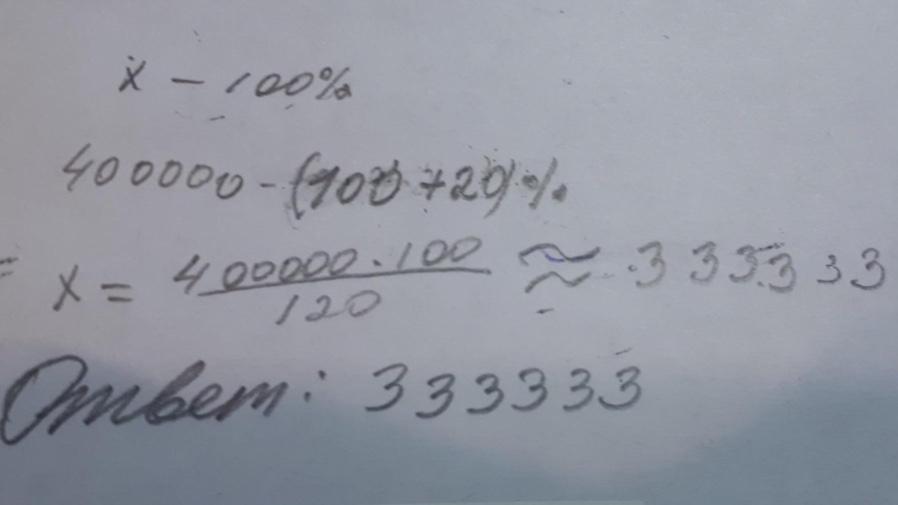 x – 100%
400000 - (100 + 20)%
x = 400000·100 / 120 ≈ 333333
Ответ: 333333